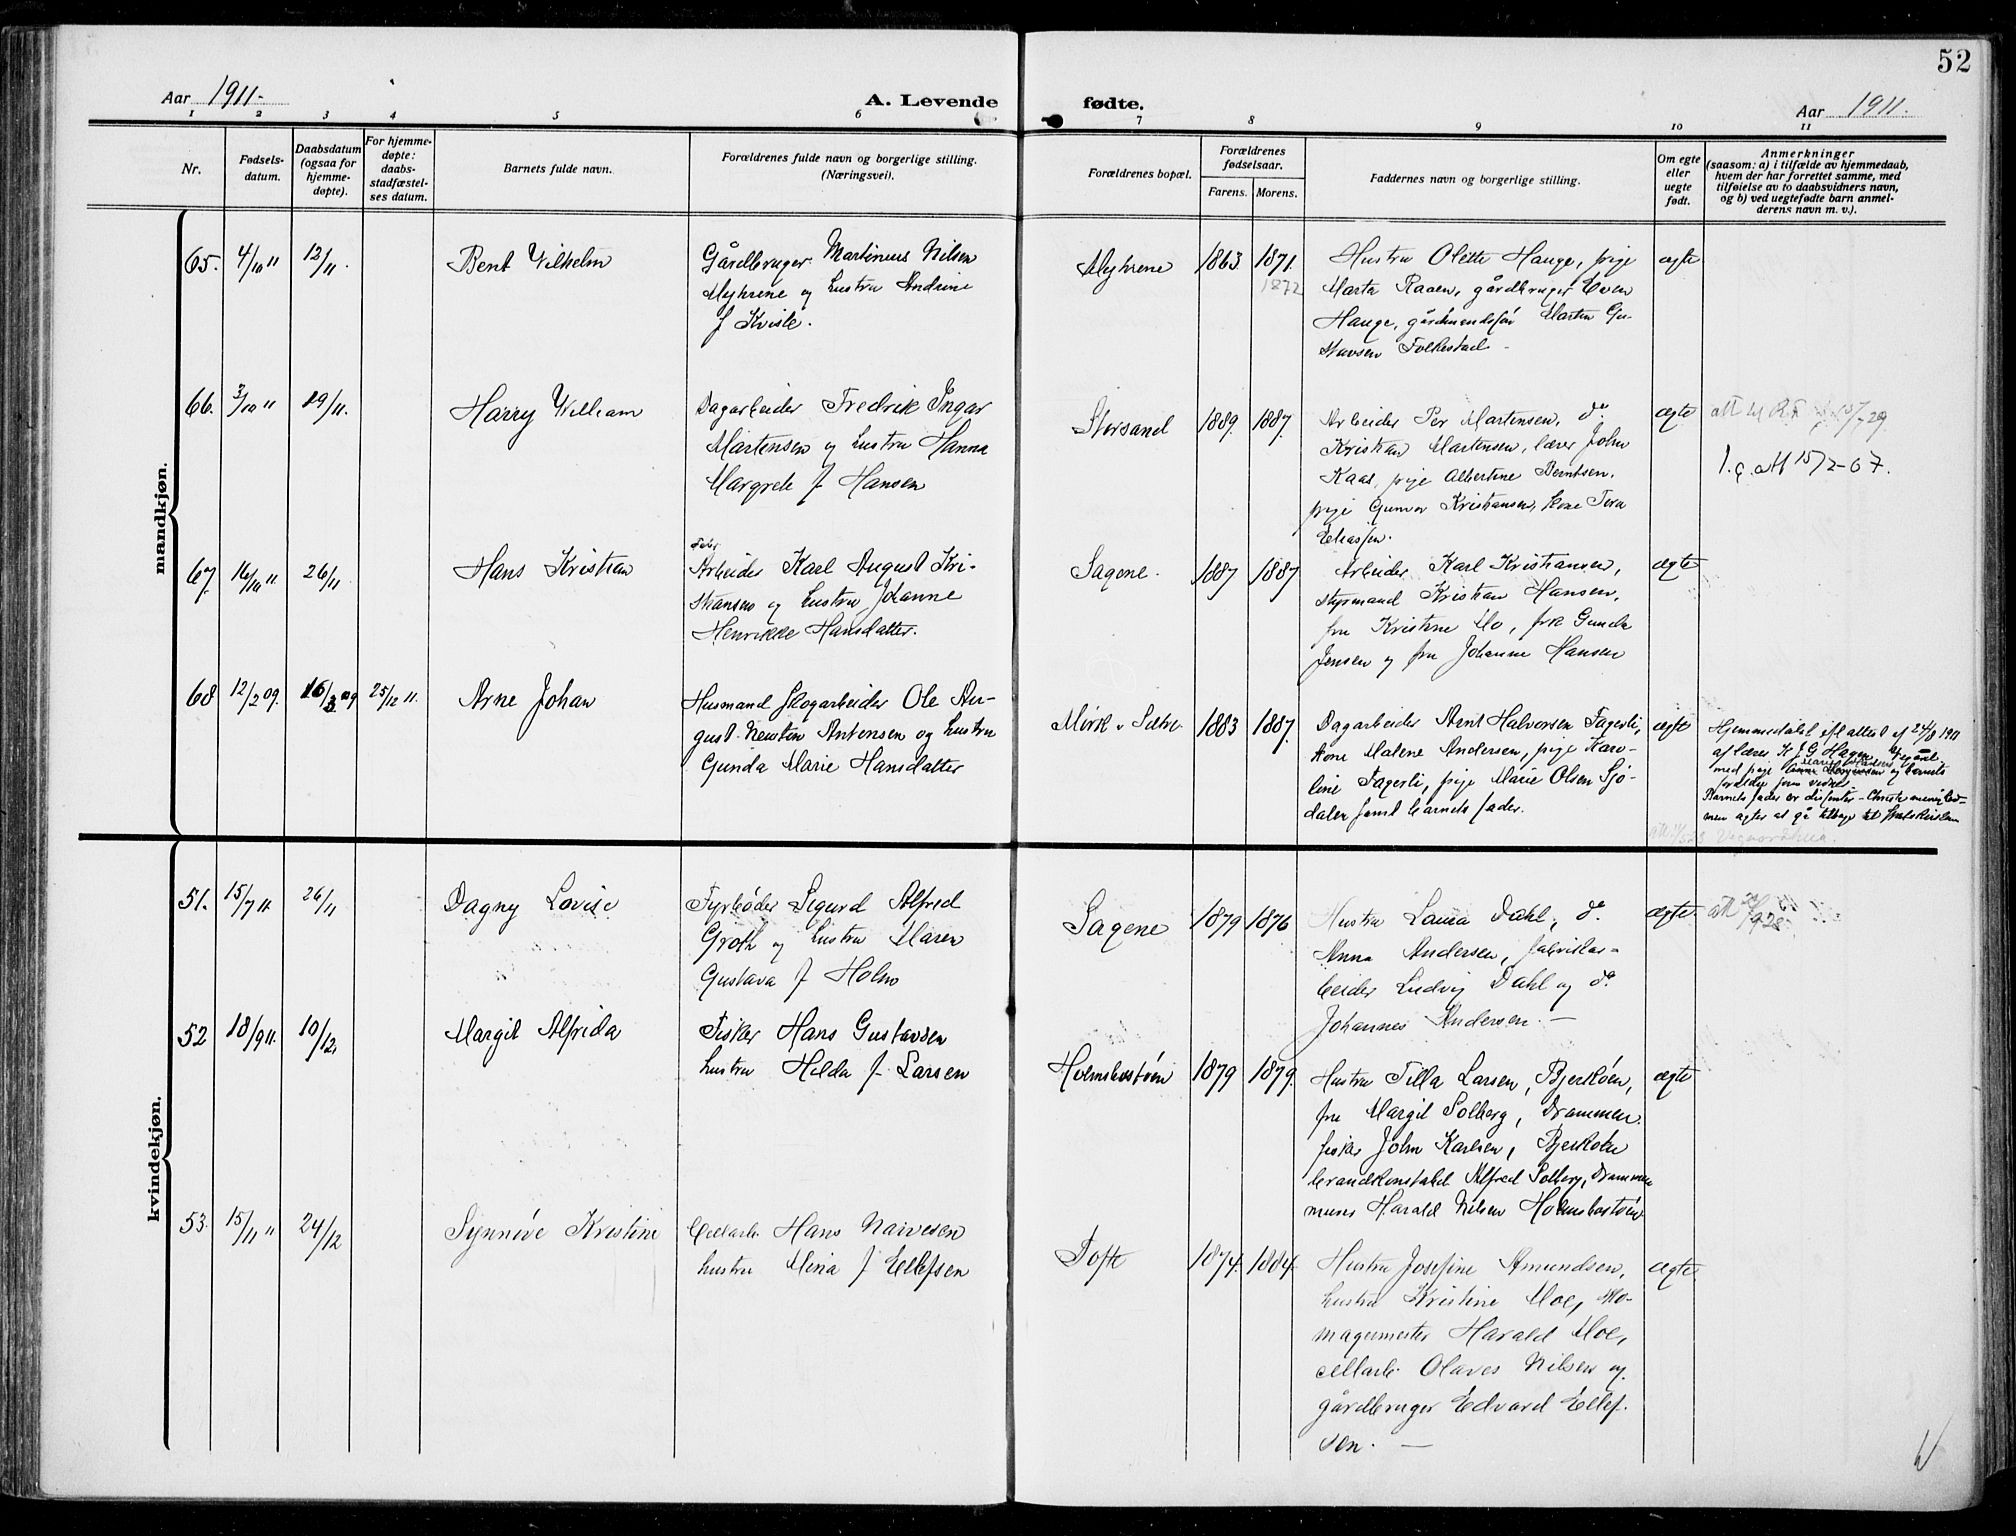 52
Aar 1911.
A. Levende
fødte.
Aar 1911.
1 2 3 4 5 6 7 8 9 10 11
Nr.
Fødsels-
datum.
Daabsdatum
(ogsaa for
hjemme-
døpte).
For hjemme-
døpte:
daabs-
stadfæstel-
ses datum.
Barnets fulde navn.
Forældrenes fulde navn og borgerlige stilling.
(Næringsvei).
Forældrenes bopæl.
Forældrenes
fødselsaar.
Farens. Morens.
Faddernes navn og borgerlige stilling.
Om egte
eller
uegte
født.
Anmerkninger
(saasom: a) i tilfælde av hjemmedaab,
hvem der har forrettet samme, med
tilføielse av to daabsvidners navn,
og b) ved uegtefødte barn anmel-
derens navn m. v.).
mandkjøn.
65. 4/10 11 12/11. Bent Vilhelm
Gårdbruger Martinius Nilsen
Myhrene og hustru Andrine
f Kvisle.
Myhrene 1863 1871.
1872
Hustru Olette Hauge, pige
Marta Raaen, gårdbruger Even
Hauge, gårdmandssøn Martin Gu-
stavsen Folkestad -
ægte
66. 3/10 11 19/11. Harry William
Dagarbeider Fredrik Ingar
Martensen og hustru Hanna
Margrete f Hansen
Storsand 1889. 1887.
Arbeider Per Martensen, do
Kristian Martensen, lærer John
Kaas, pige Albertine Berntsen,
pige Gunvor Kristiansen, kone Tora
Eliassen.
ægte
1.9. att 15/2-67.
67. 16/10 11 26/11 Hans Kristian
Fabr
Arbeider Karl August Kri-
stiansen og hustru Johanne
Henrikke Hansdatter.
Sagene. 1887 1887
Arbeider Karl Kristiansen,
styrmand Kristian Hansen,
fru Kristine Mo, frk Gunda
Jensen og fru Johanne Hansen
ægte
68 12/2 09. 16/3 09 25/12 11. Arne Johan
Husmand skogarbeider Ole Au-
gust Antonsen og hustru
Gunda Marie Hansdatter
Mörk v Sætre 1883 1887.
Dagarbeider Arnt Halvorsen Fagerli,
kone Malene Andersen, pige Karo-
line Fagerli, pige Marie Olsen Sjö-
dalen samt barnets fader.
ægte
Hjemmedøbt efl attest af 24/8 1911
af lærer K J G Hagen
med pige og barnets
forældre som vidner
Barnets fader er disenter - Christi menighed -
men agter at gå tilbage til statskirken
kvindekjøn.
51. 15/7 11 26/11 Dagny Lovise
Fyrbøder Sigurd Alfred
Groth og hustru Maren
Gustava f Holm
Sagene 1879 1876
Hustru Laura Dahl, do
Anna Andersen, fabrikar-
beider Ludvig Dahl og do
Johannes Andersen. -
ægte.
52 18/9 11. 10/12. Margit Alfrida
Fisker Hans Gustavsen
hustru Hilda f Larsen
Holmsbostöen 1879 1879.
Hustru Tilla Larsen, Bjerköen,
fru Margit Solberg, Drammen
fisker John Karlsen, Bjerköen
brandkonstabel Alfred Solberg, Drammen
murer Harald Nilsen Holmsbostöen
ægte
53. 15/11 11 24/12 Synnöve Kristine
Cellarb. Hans Narvesen
hustru Mina f Ellefsen
Tofte 1874. 1884.
Hustru Josefine Amundsen,
hustru Kristine Moe, sko-
magermester Harald Moe,
cellarb. Olaves Nilsen og
gårdbruger Edvard Ellef-
sen. -
ægte